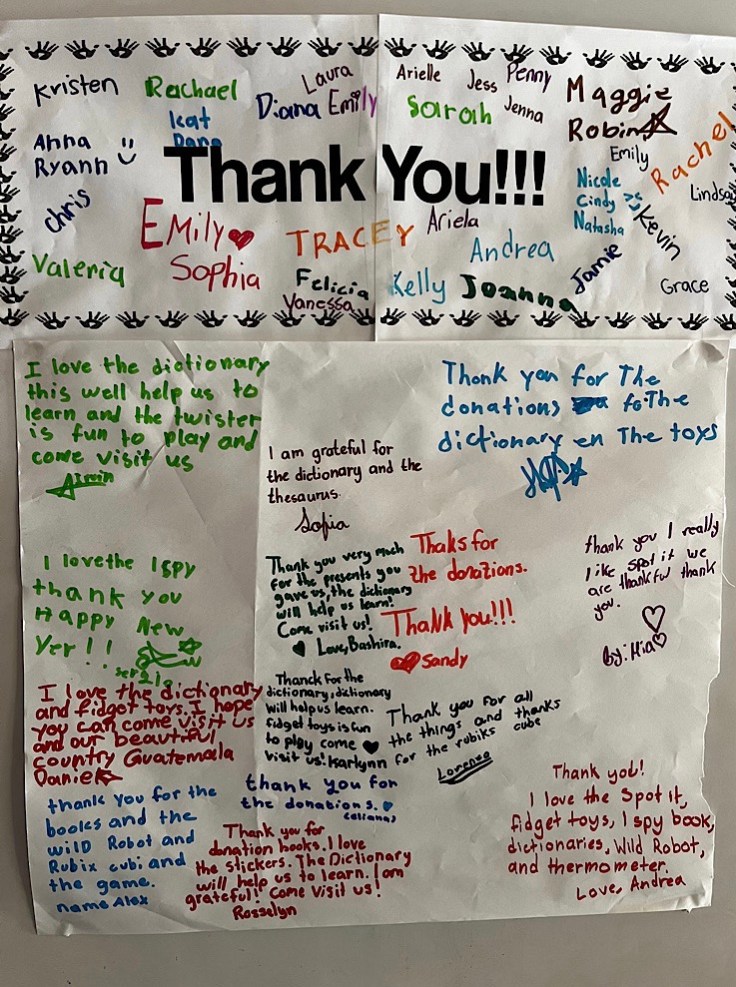 Kristen
Rachael
Laura
Diana
Emily
Arielle
Jess
Penny
Maggie
Kat
Dana
Sarah
Jenna
Robin
Anna
Ryann
Thank You!!!
Emily
Rachel
Nicole
Cindy
Natasha
Lindsay
Chris
Emily
TRACEY
Ariela
Andrea
Kevin
Valeria
Sophia
Felicia
Vanessa
Kelly
Joanna
Jamie
Grace
I love the dictionary
this well help us to
learn and the twister
is fun to play and
come visit us
Thank you for The
donations fo The
dictionary en The toys
I am grateful for
the dictionary and the
thesaurus.
Sofia
I love the I spy
thank you
Happy New
Yer!!
Thank you very much
for the presents you
gave us, the dictionary
will help us learn!
Come visit us!
Love, Bashira.
Thaks for
the donations.
Thank you!!!
Sandy
thank you I really
like spot it we
are thankful thank
you.
by: Mia
I love the dictionary
and fidgot toys. I hope
you can come visit us
and our beautiful
country Guatemala
Daniel
Thanck for the
dictionary, dictionary
will help us learn.
fidget toys is fun
to play come
visit us! Karlynn
Thank you for all
the things and thanks
for the rubiks cube
Lorenzo
thank you for the
books and the
wilD Robot and
Rubix cubi and
the game.
name Alex
thank you for
the donations.
Thank you for
donation books. I love
the stickers. The Dictionary
will help us to learn. I am
grateful! Come visit us!
Rosselyn
Thank you!
I love the Spot it,
fidget toys, I spy book,
dictionaries, Wild Robot,
and thermometer.
Love, Andrea